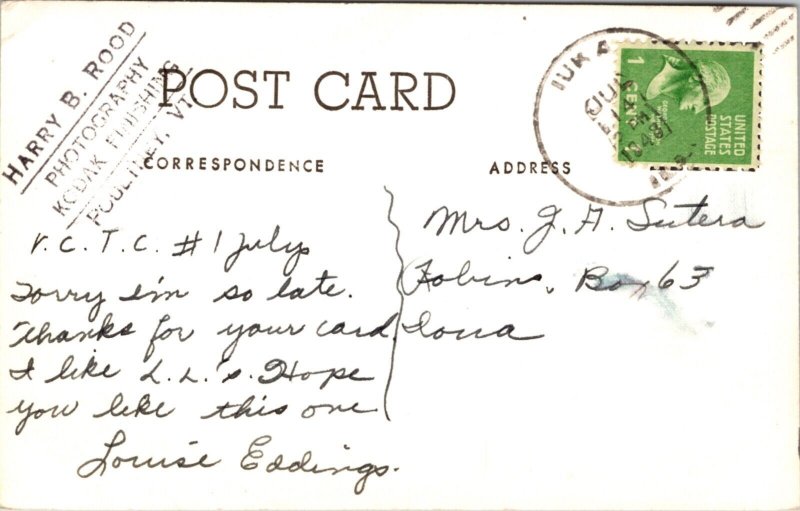 HARRY B. ROOD
PHOTOGRAPHY
KODAK FINISHING
POULTNEY, VT.
POST CARD
CORRESPONDENCE
ADDRESS
IUKA
JUL
1948
1 CENT 1
GEORGE WASHINGTON
UNITED
STATES
POSTAGE
V.C.T.C. #1 July
Sorry I'm so late.
Thanks for your card.
I like L.L.'s. Hope
you like this one
Louise Eddings.
Mrs. J. A. Sutera
Robins, Box 63
Iowa